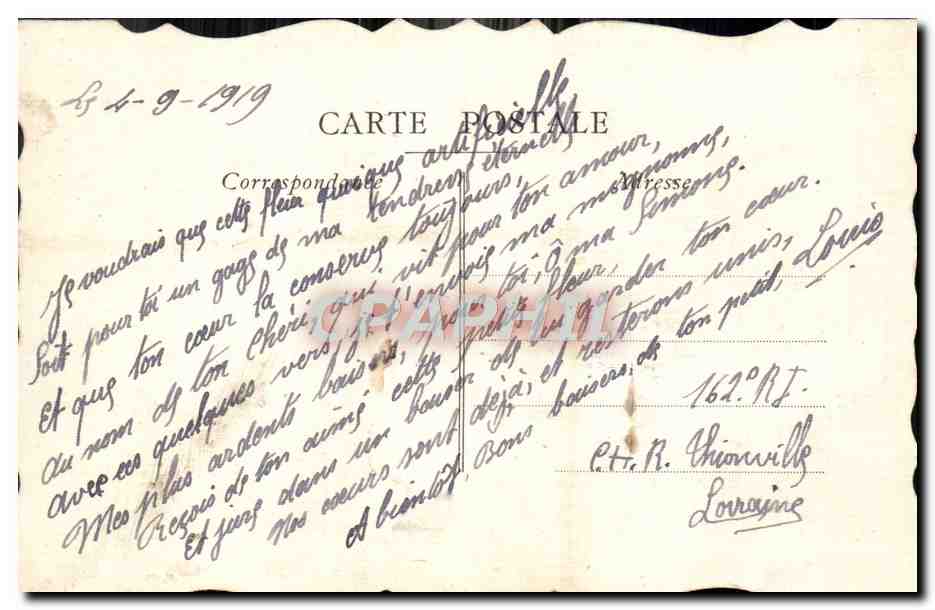 Le 4-9-1919
CARTE POSTALE
Correspondance
Adresse
Je voudrais que cette fleur quoique artificielle
Soit pour toi un gage de ma tendresse éternelle
Et que ton cœur la conserve toujours,
Au nom de ton chéri qui vit pour ton amour,
Avec ces quelques vers, je t'envoie ma mignonne,
Mes plus ardents baisers, pour toi, Ô ma Simone.
Reçois de ton aimé cette petite fleur,
Et jure dans un baiser de lui garder ton cœur.
Nos cœurs sont déjà, et resterons unis,
A bientôt, Bons baisers, de ton petit, Louis
162e R.I.
C.H.R. Thionville
Lorraine
CPAPHIL